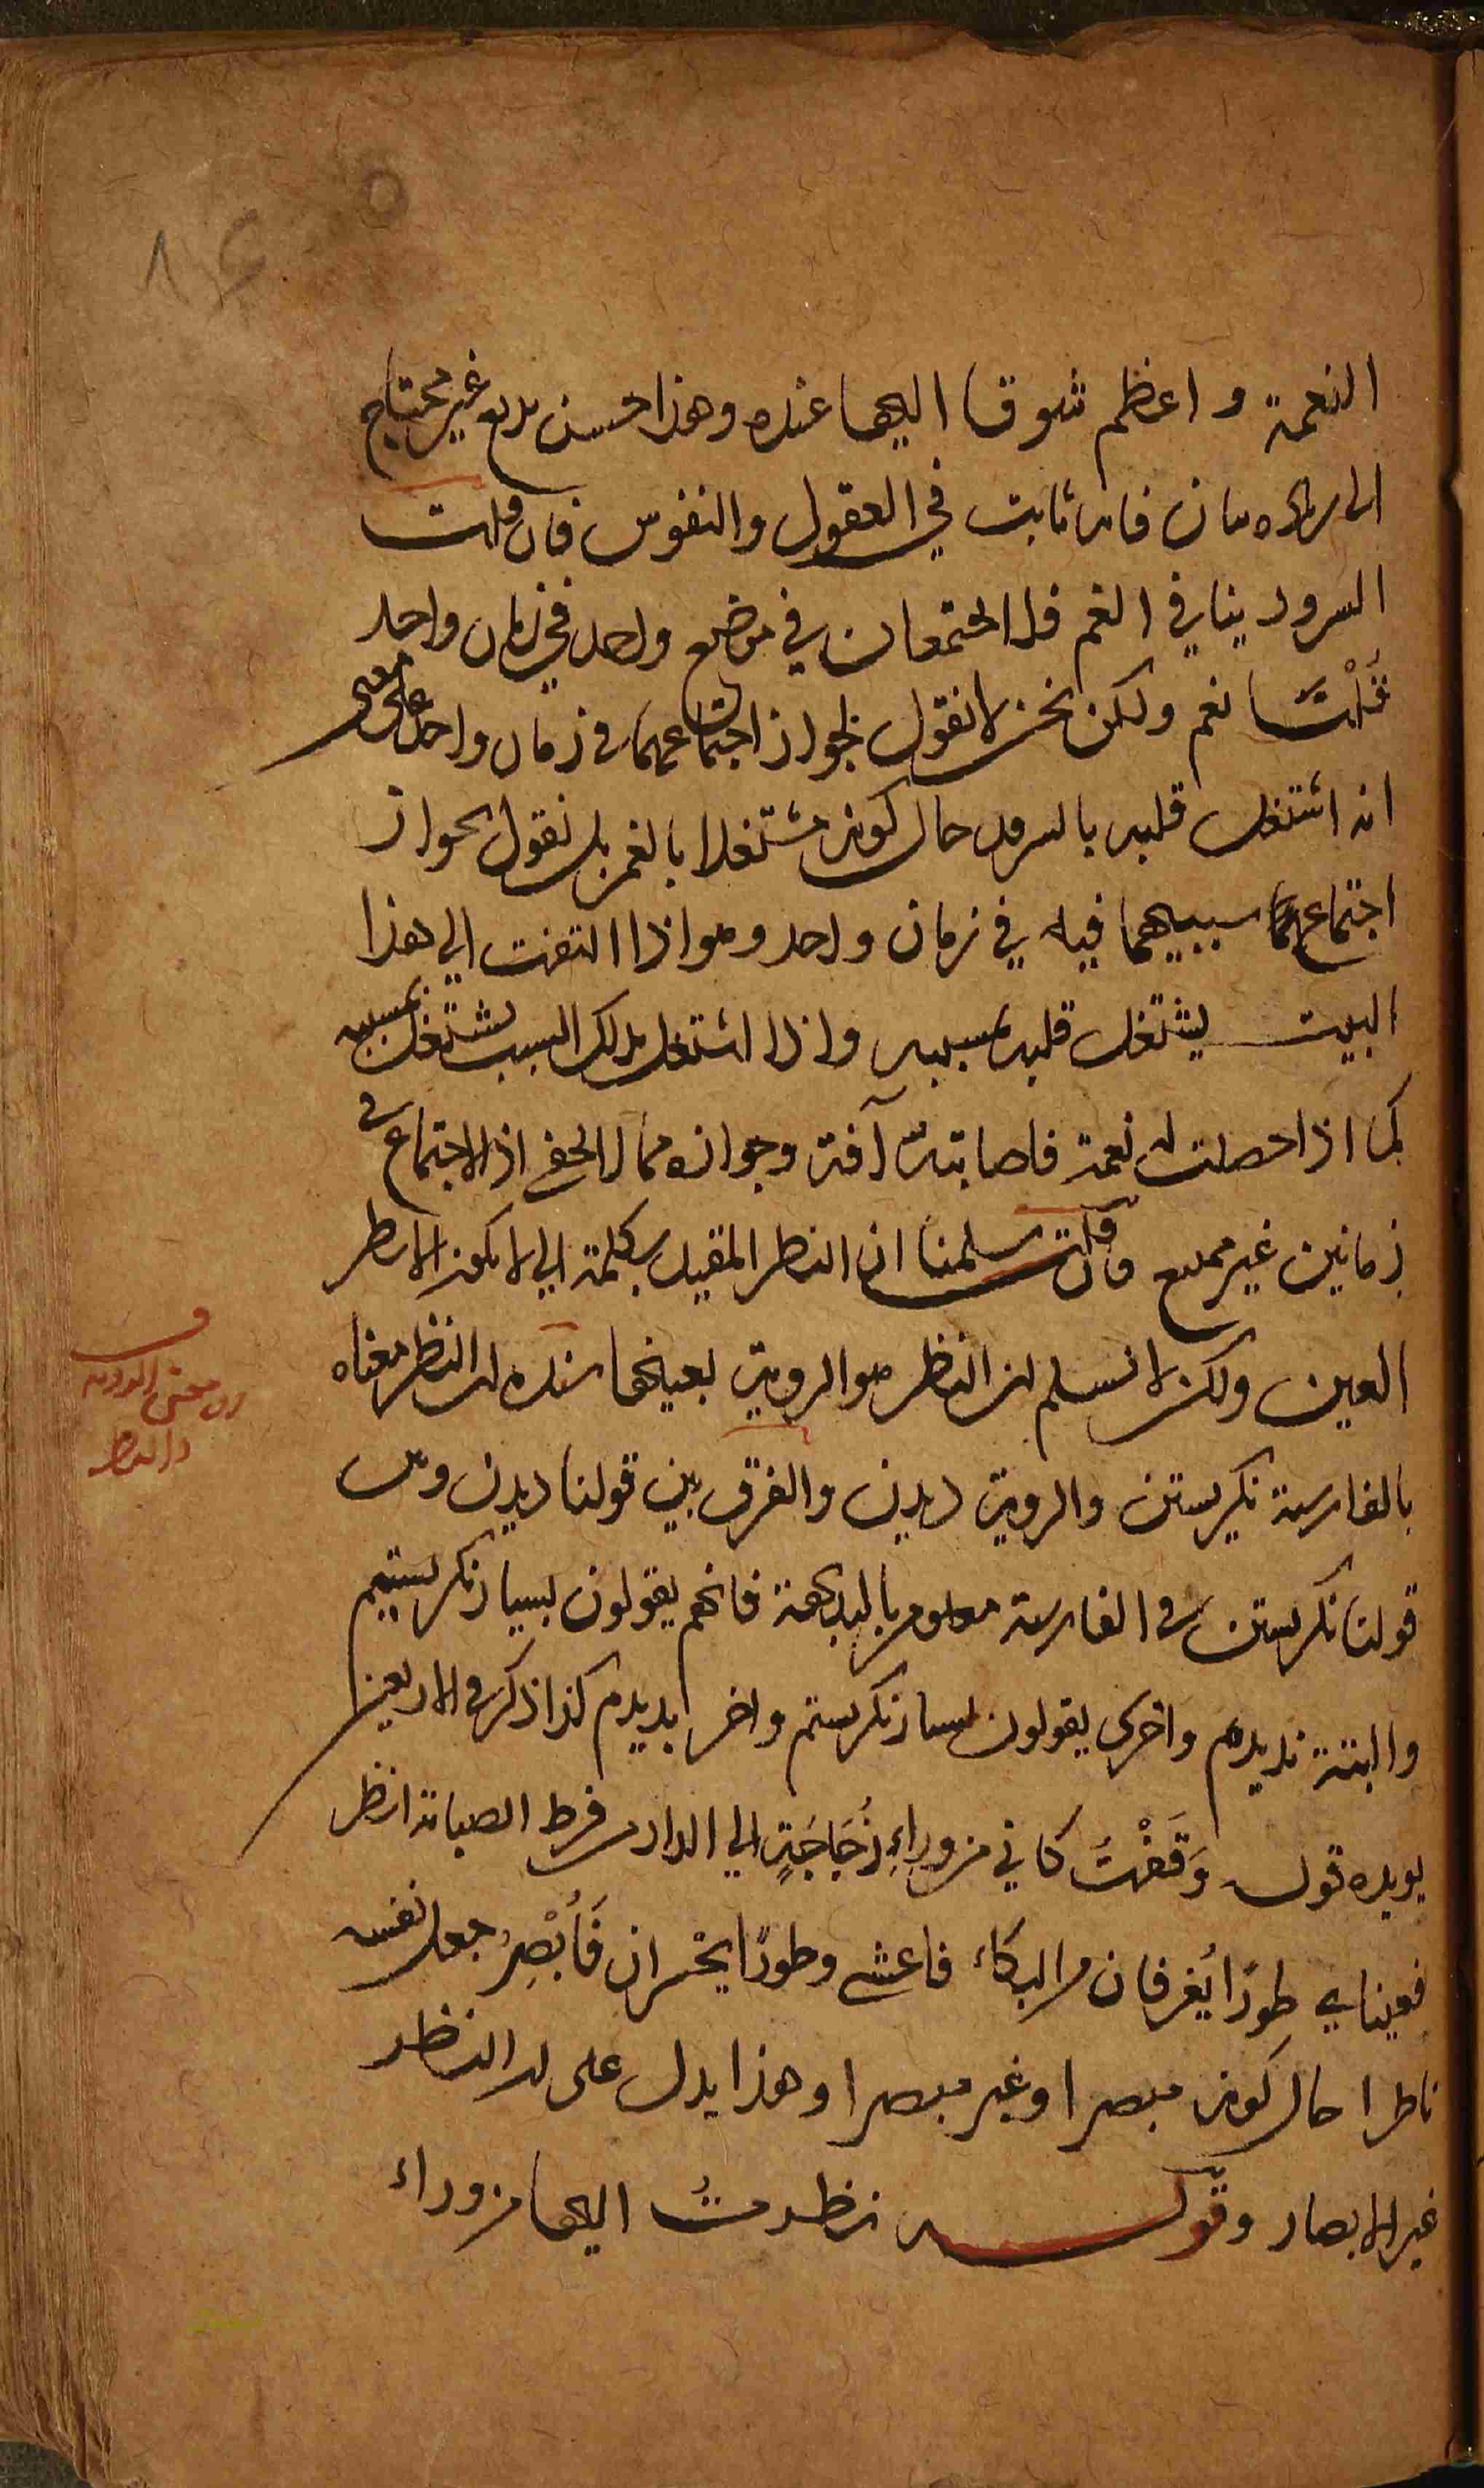 النعمة واعظم شوقا اليها عنده وهذا حسن بديع غير محتاج
الى زيادة بيان فانه ثابت في العقول والنفوس فان قلت
السرور ينافي الغم فلا يجتمعان في موضع واحد في زمان واحد
قُلْتُ نعم ولكن نحن لا نقول بجواز اجتماعهما في زمان واحد على معنى
انه اشتغل قلبه بالسرور حال كونه مشتغلا بالغم بل نقول بجواز
اجتماع سببيهما فيه في زمان واحد وهو اذا التفت الى هذا
البيت يشتغل قلبه بمسببه واذا اشتغل بذلك السبب يشتغل بمسببه
كما اذا حصلت له نعمة فاصابته آفة وجوازه مما لا يخفى اذ الاجتماع في
زمانين غير ممتنع فان قلت سلمنا ان النظر المقيد بكلمة الى لا يكون الا نظر
العين ولكن لا نسلم ان النظر هو الروية بعينها سنده ان النظر معناه
بالفارسية نكريستن والروية ديدن والفرق بين قولنا ديدن وبين
قولنا نكريستن في الفارسية معلوم بالبديهة فانهم يقولون بسيار نكريستيم
والبتة نديدم واخرى يقولون بسيار نكريستم واخر بديدم كذا ذكر في الاربعين
يويده قوله وَقَفْتُ كاني من وراءِ زُجَاجَةٍ الى الدار من فرط الصبابة انظر
فعيناي طورًا يُغرقان من البكاء فاعشى وطورًا يحسران فَأُبْصِرُ جعل نفسه
ناظرا حال كونه مبصرا وغير مبصرا وهذا يدل على ان النظر
غير الابصار وقوله نظرتُ اليها من وراء
ف
معنى الروية
والنظر